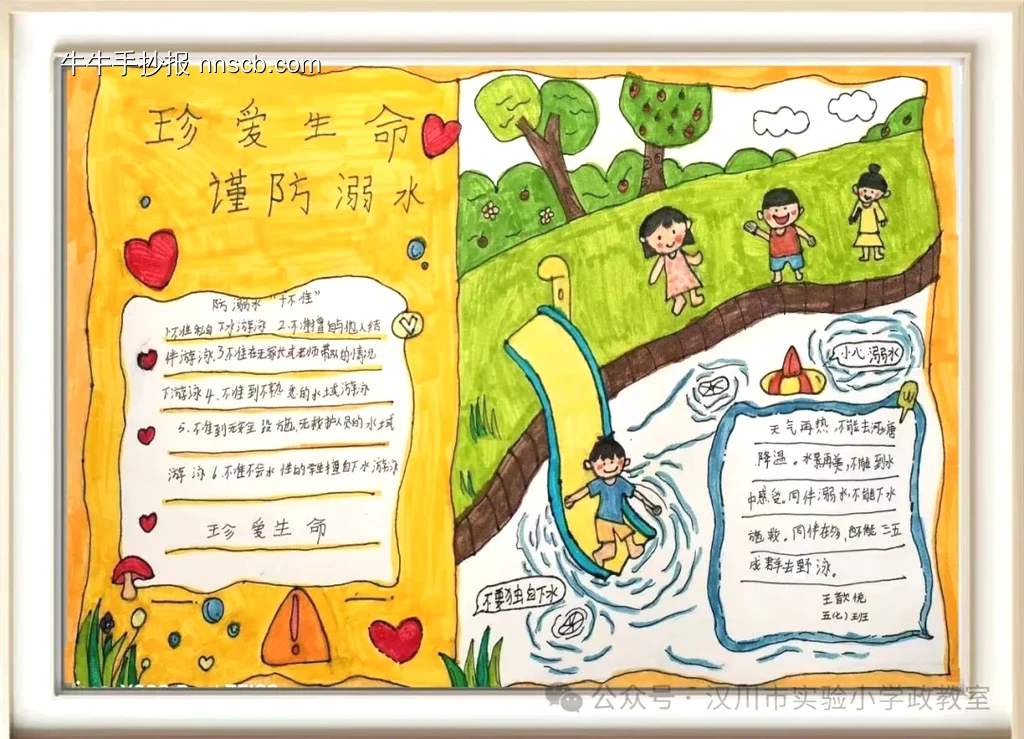 牛牛手抄报 nnscb.com
珍爱生命
谨防溺水
防溺水“六不准”
1.不准私自下水游泳 2.不准擅自与他人结
伴游泳 3.不准在无家长或老师带队的情况
下游泳 4.不准到不熟悉的水域游泳
5.不准到无安全设施、无救护人员的水域
游泳 6.不准不会水性的学生擅自下水游泳
珍爱生命
小心溺水
天气再热,不能去河塘
降温。水景再美,不能到水
中感受。同伴溺水,不能下水
施救。同伴在多,也不能三五
成群去野泳。
五(七)班
不要独自下水
公众号·汉川市实验小学政教室